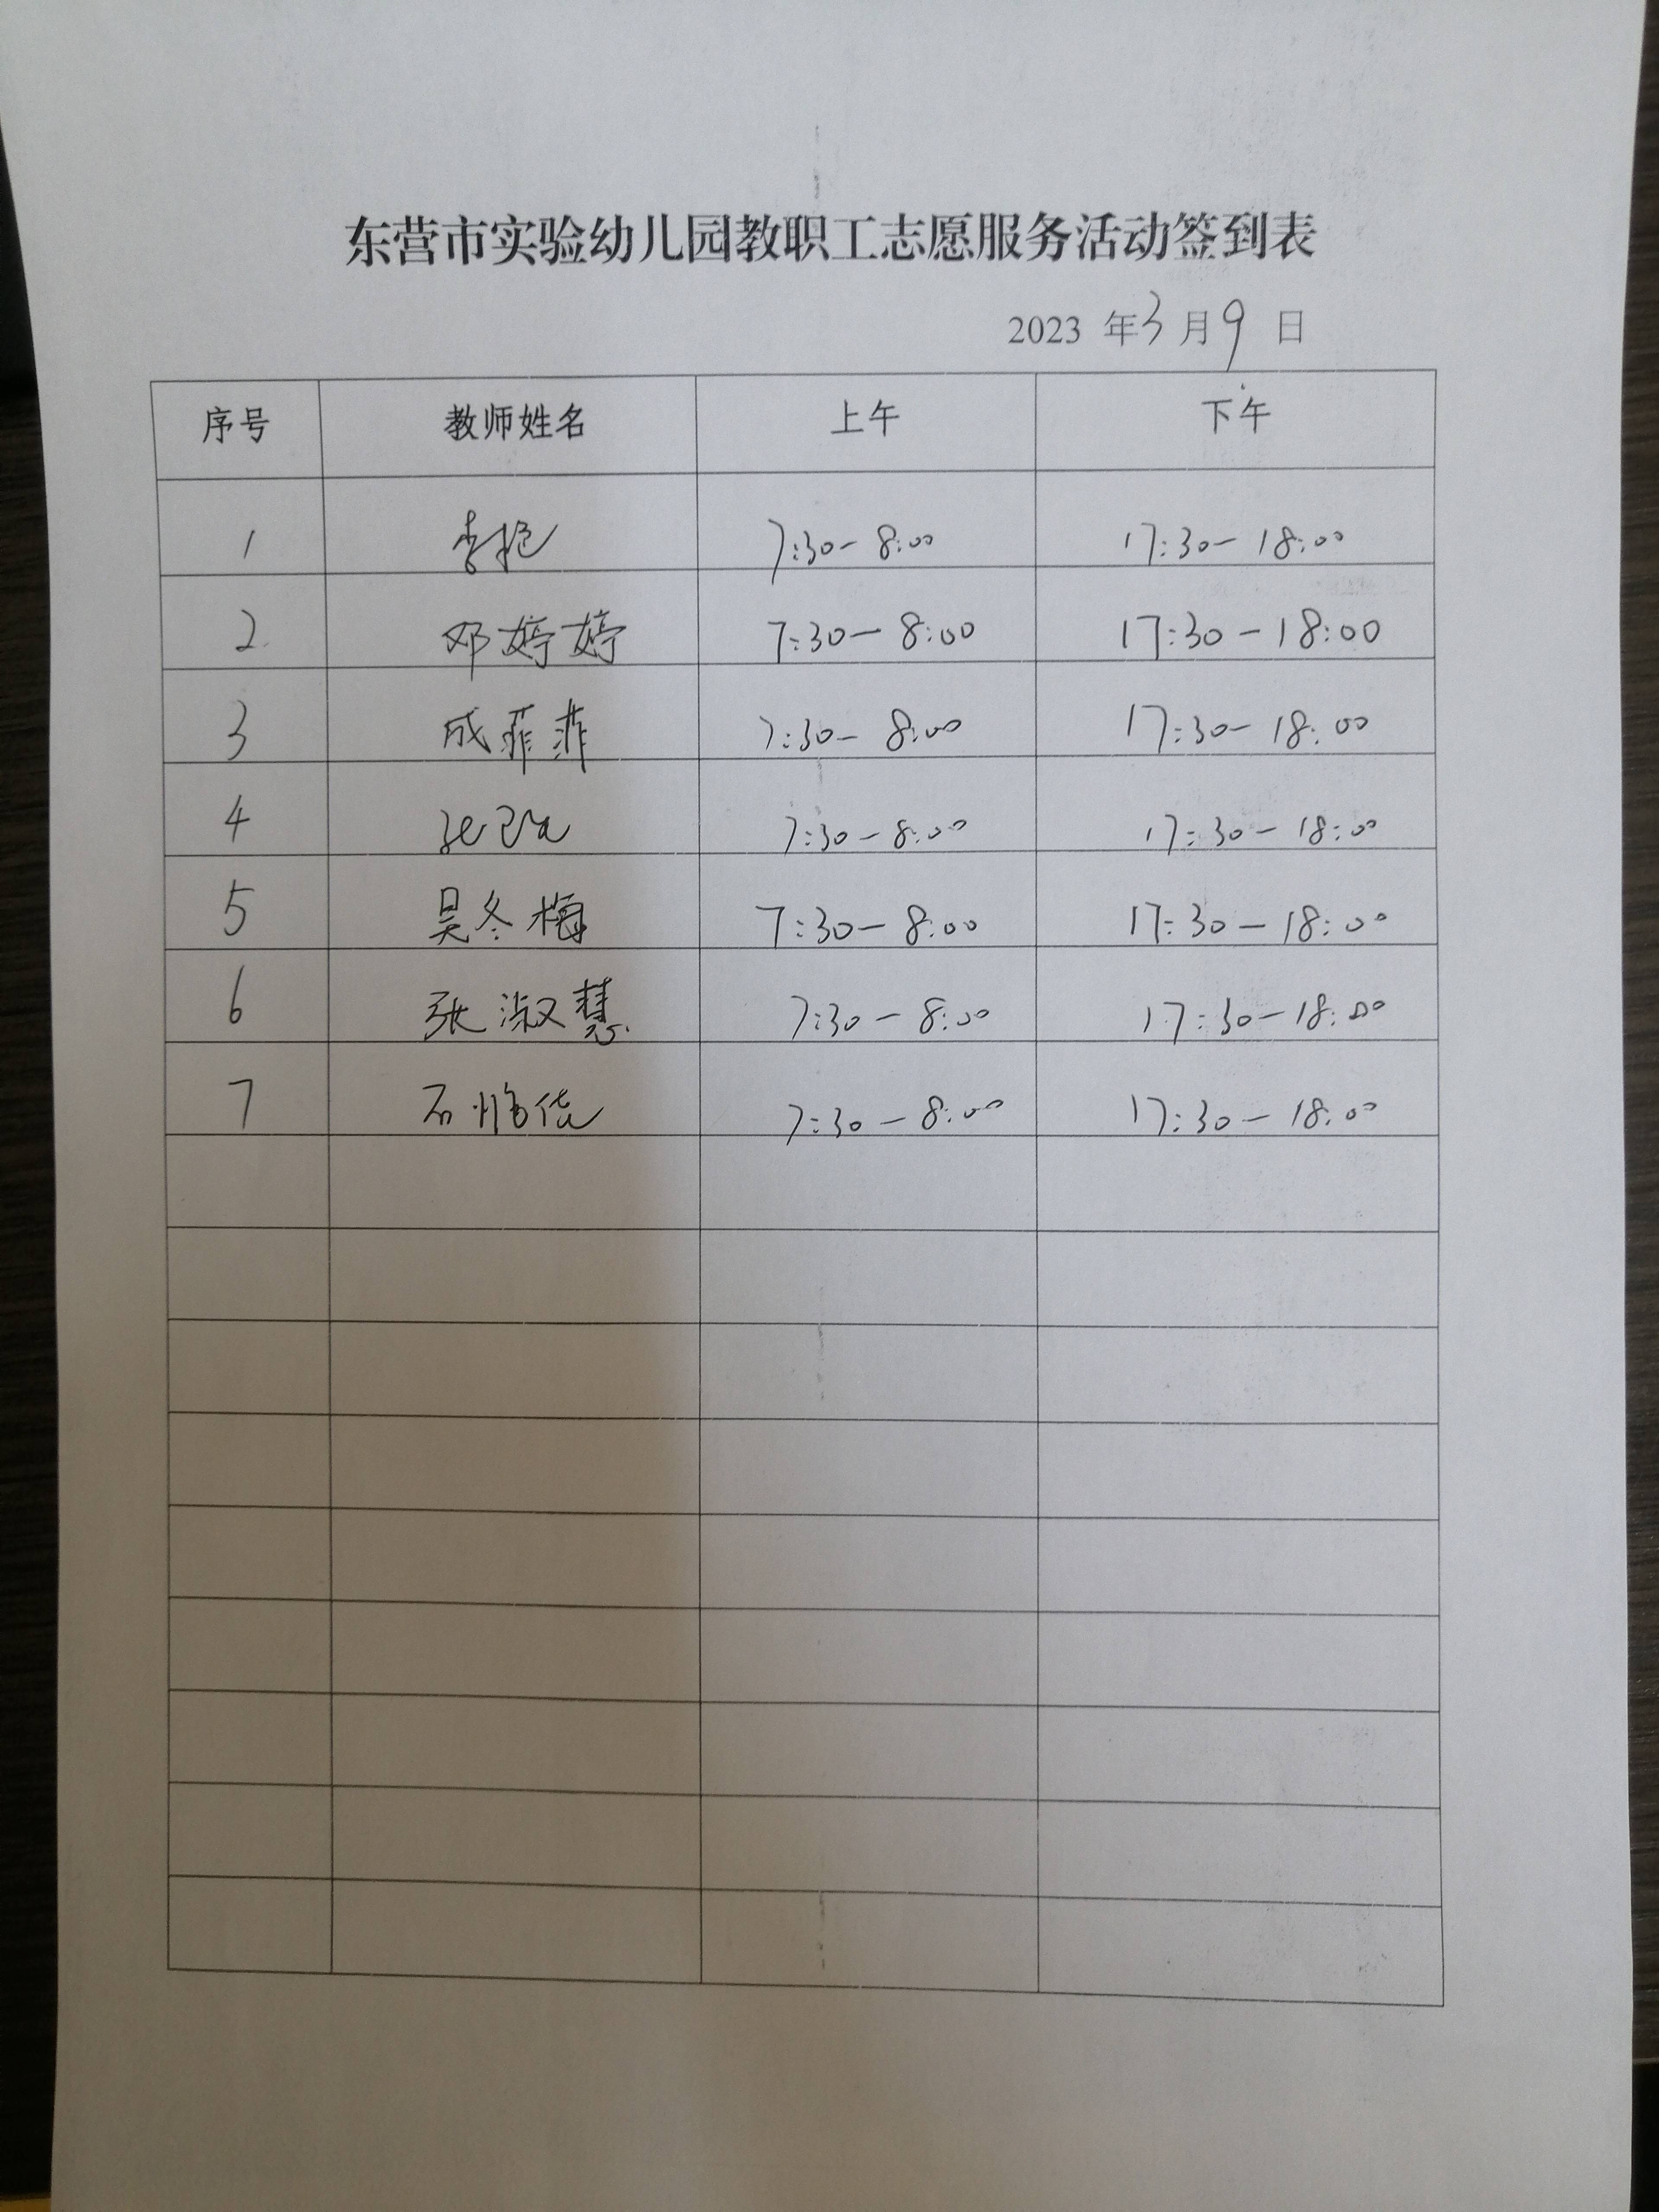 东营市实验幼儿园教职工志愿服务活动签到表
2023 年 3 月 9 日
序号 教师姓名 上午 下午
1 李艳 7:30-8:00 17:30-18:00
2 邓婷婷 7:30-8:00 17:30-18:00
3 成菲菲 7:30-8:00 17:30-18:00
4 7:30-8:00 17:30-18:00
5 吴冬梅 7:30-8:00 17:30-18:00
6 张淑慧 7:30-8:00 17:30-18:00
7 石 7:30-8:00 17:30-18:00